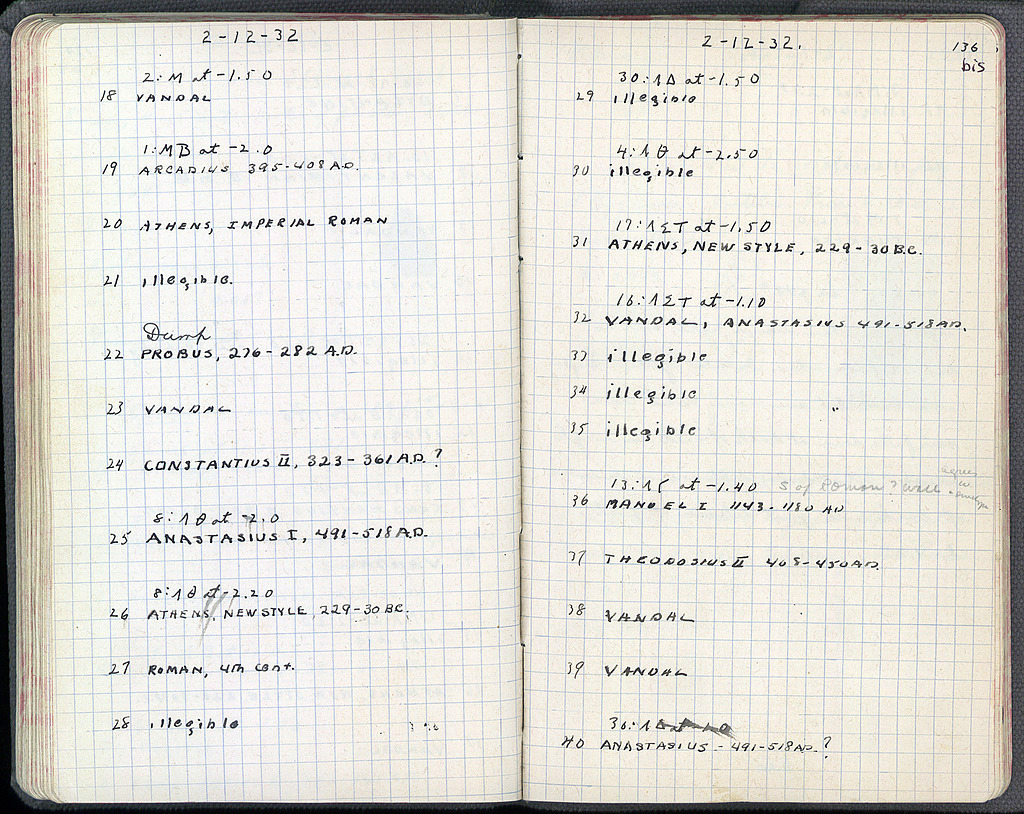 2-12-32
2: M at -1.50
18 VANDAL
1: MB at -2.0
19 ARCADIUS 395-408 A.D.
20 ATHENS, IMPERIAL ROMAN
21 illegible.
Dump
22 PROBUS, 276-282 A.D.
23 VANDAL
24 CONSTANTIUS II, 323-361 A.D.?
8: ΛΘ at -2.0
25 ANASTASIUS I, 491-518 A.D.
8: ΛΘ at -2.20
26 ATHENS, NEW STYLE, 229-30 B.C.
27 ROMAN, 4th Cent.
28 illegible
2-12-32.
136
bis
30: ΛΔ at -1.50
29 illegible
4: ΛΘ at -2.50
30 illegible
17: ΛΣΤ at -1.50
31 ATHENS, NEW STYLE, 229-30 B.C.
16: ΛΣΤ at -1.10
32 VANDAL, ANASTASIUS 491-518 A.D.
33 illegible
34 illegible
35 illegible
agrees
w.
envelope
13: ΛϚ at -1.40 S of Roman? wall
36 MANOEL I 1143-1180 AD
37 THEODOSIUS II 408-450 A.D.
38 VANDAL
39 VANDAL
36: ΛΔ at
40 ANASTASIUS - 491-518 A.D.?